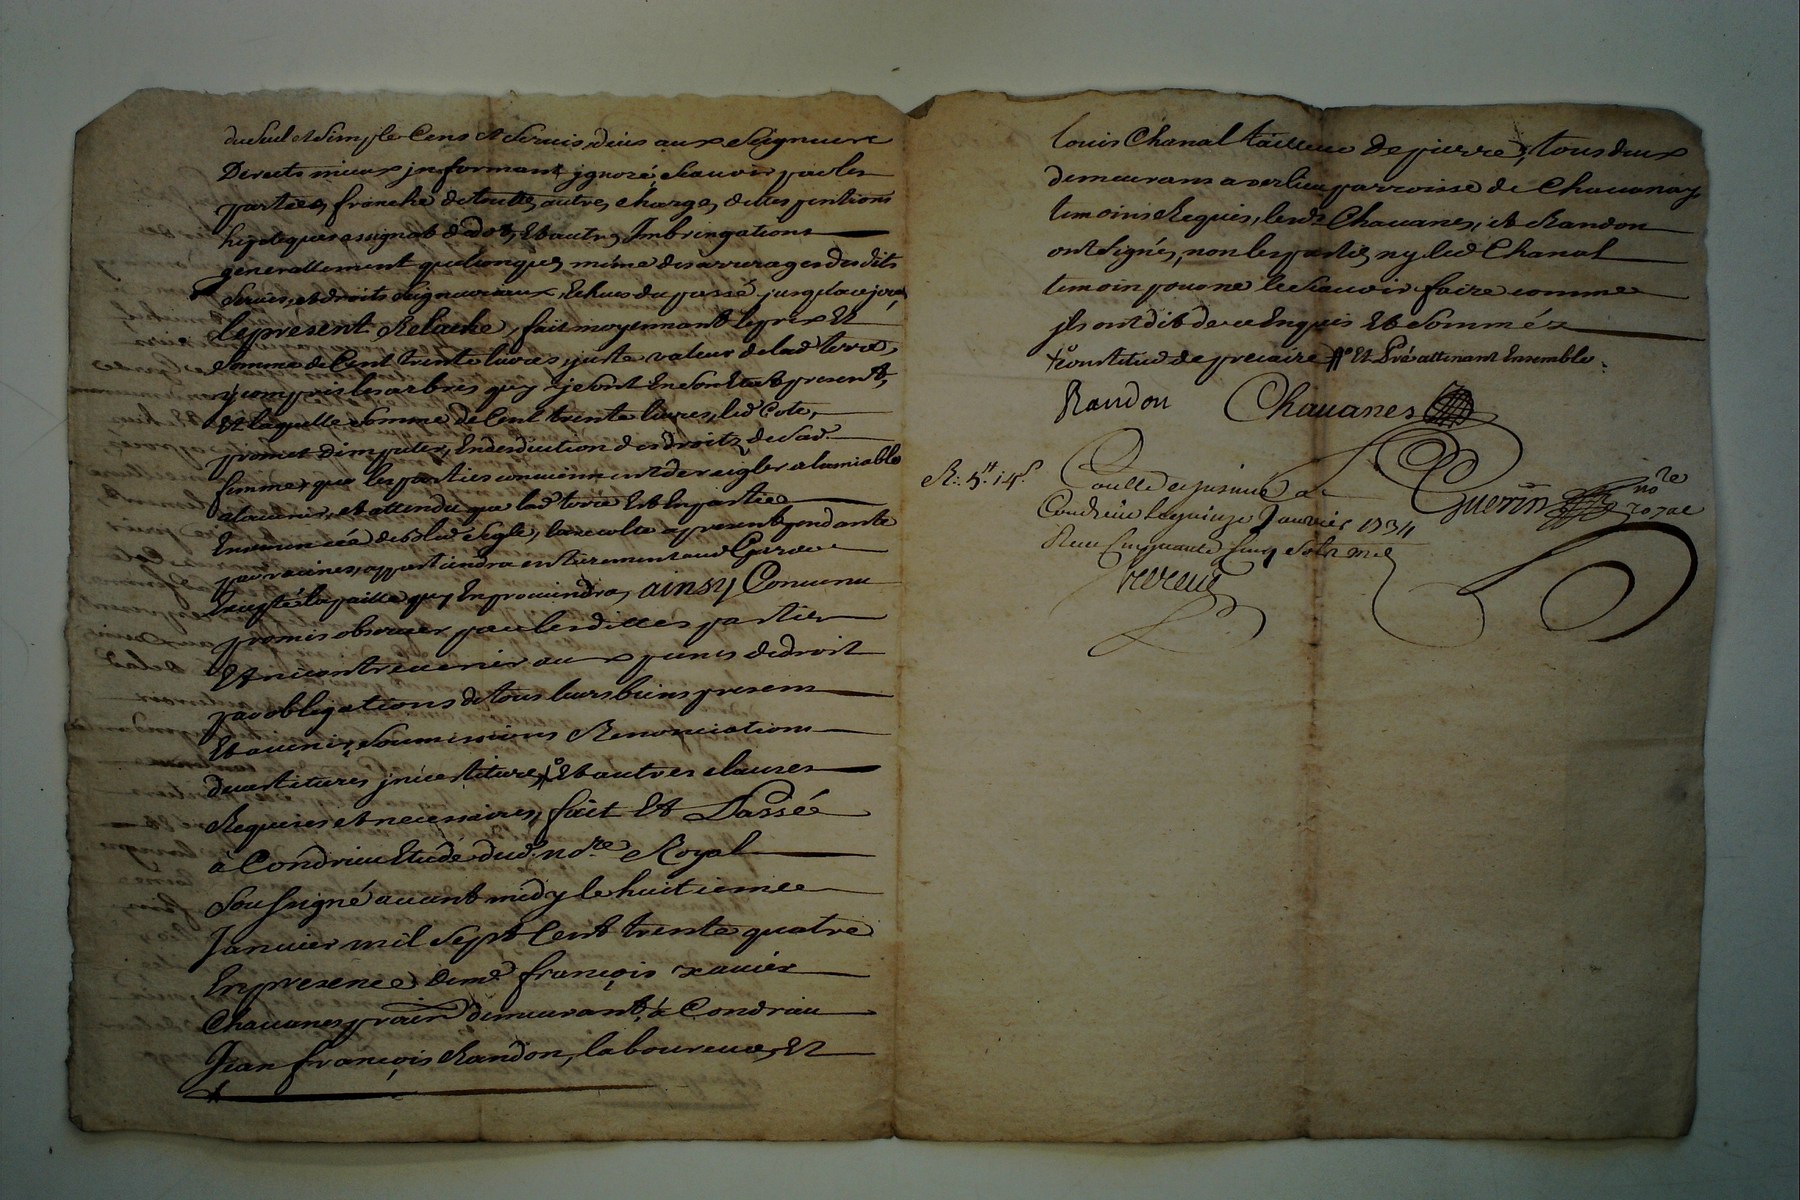 du seul et simple Cens et servis, deus aux Seigneurs
Directs mieux informant ignoré scauoir par les
parties, franche de toutte autres charges, dettes pentions
hipoteques assignat de dot, Et autres Imbringations
generallement quelconques, même des arrerages des dits
servis, et droits seigneuriaux, Echues du passé jusqu'a ce jour
le present Relache, fait moyennant le prix Et
somme de Cent trente liures, juste valeur de lad. terre,
y compris les arbres quy y sont En son Etat present,
Et laquelle somme de Cent trente liures, led. Cote,
promet d'imputer, En deduction des droits, de sad.
femme, que les parties conuiennent de reigler a lamiable
alauenir, et attendu que lad. terre Est En partie
Ensemencée de bled segle, la recolte a present pendante
par racines, appartiendra entierement aud.
Excepté la paille quy En prouiendra, ainsy Conuenu
promis obseruer par les dittes parties
Et n'y contreuenir aux peines de droit
par obligations de tous leurs biens presens
Et auenir, soumissions Renonciations
deuestitures jnuestitures, +° Et autres clauses
Requises et necessaires, fait Et Passé
à Condrieu Etude dud. no.re Royal
soussigné auant midy le huitieme
Januier mil sept Cent trente quatre
En presence de m.e françois xauier
Chauanes pra.en demeurant, à Condrieu
Jean françois Randon, laboureur, Et
louis Chanal tailleur de pierre, tous deux
demeurans a verlieu parroisse de Chauanay
temoins Requis, lesd.s Chauanes, et Randon
ont signés, non les parties ny led. Chanal
temoin pour ne le scauoir faire comme
jls ont dit de ce Enquis Et Sommés
+° constitud de precaire # Et Pré attenant Ensemble.
Randon Chauanes
R: 5.# 15.s
Guerin no.re royal
Condrieu le quinze Januier 1734
Receu Cinquante Cinq sols